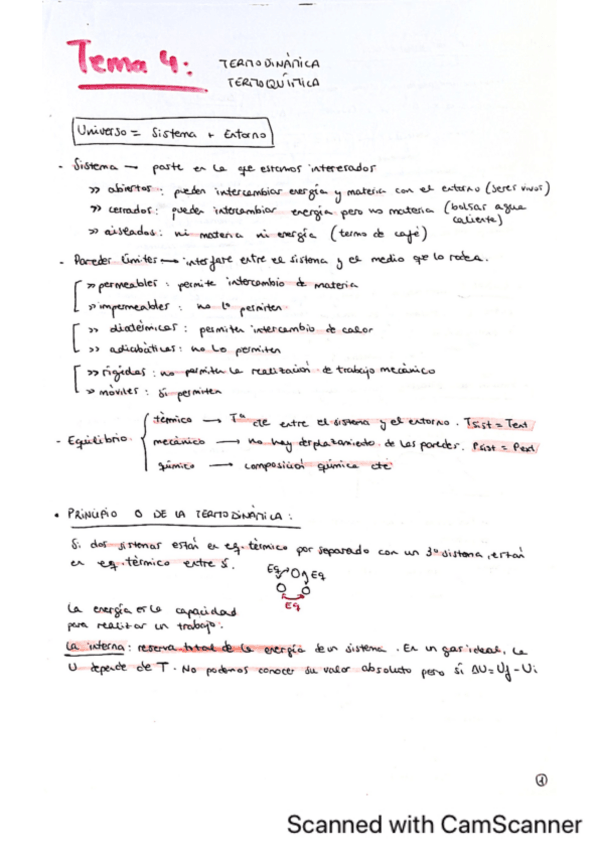 Tema 4:
TERMODINÁMICA
TERMOQUÍMICA
Universo = Sistema + Entorno
- Sistema → parte en la que estamos interesados
>> abiertos: pueden intercambiar energía y materia con el entorno (seres vivos)
>> cerrados: pueden intercambiar energía pero no materia (bolsas agua caliente)
>> aislados: ni materia ni energía (termo de café)
- Paredes límites → interfase entre el sistema y el medio que lo rodea.
>> permeables: permite intercambio de materia
>> impermeables: no lo permiten
>> diatérmicas: permiten intercambio de calor
>> adiabáticas: no lo permiten
>> rígidas: no permiten la realización de trabajo mecánico
>> móviles: sí permiten
- Equilibrio
térmico → Tª cte entre el sistema y el entorno. Tsist = Text
mecánico → no hay desplazamiento de las paredes. Psist = Pext
químico → composición química cte
• PRINCIPIO 0 DE LA TERMODINÁMICA:
Si dos sistemas están en eq. térmico por separado con un 3º sistema, están
en eq. térmico entre sí.
Eq Eq
Eq
La energía es la capacidad
para realizar un trabajo.
La interna: reserva total de la energía de un sistema. En un gas ideal, la
U depende de T. No podemos conocer su valor absoluto pero sí ΔU = Uf - Ui
1
Scanned with CamScanner